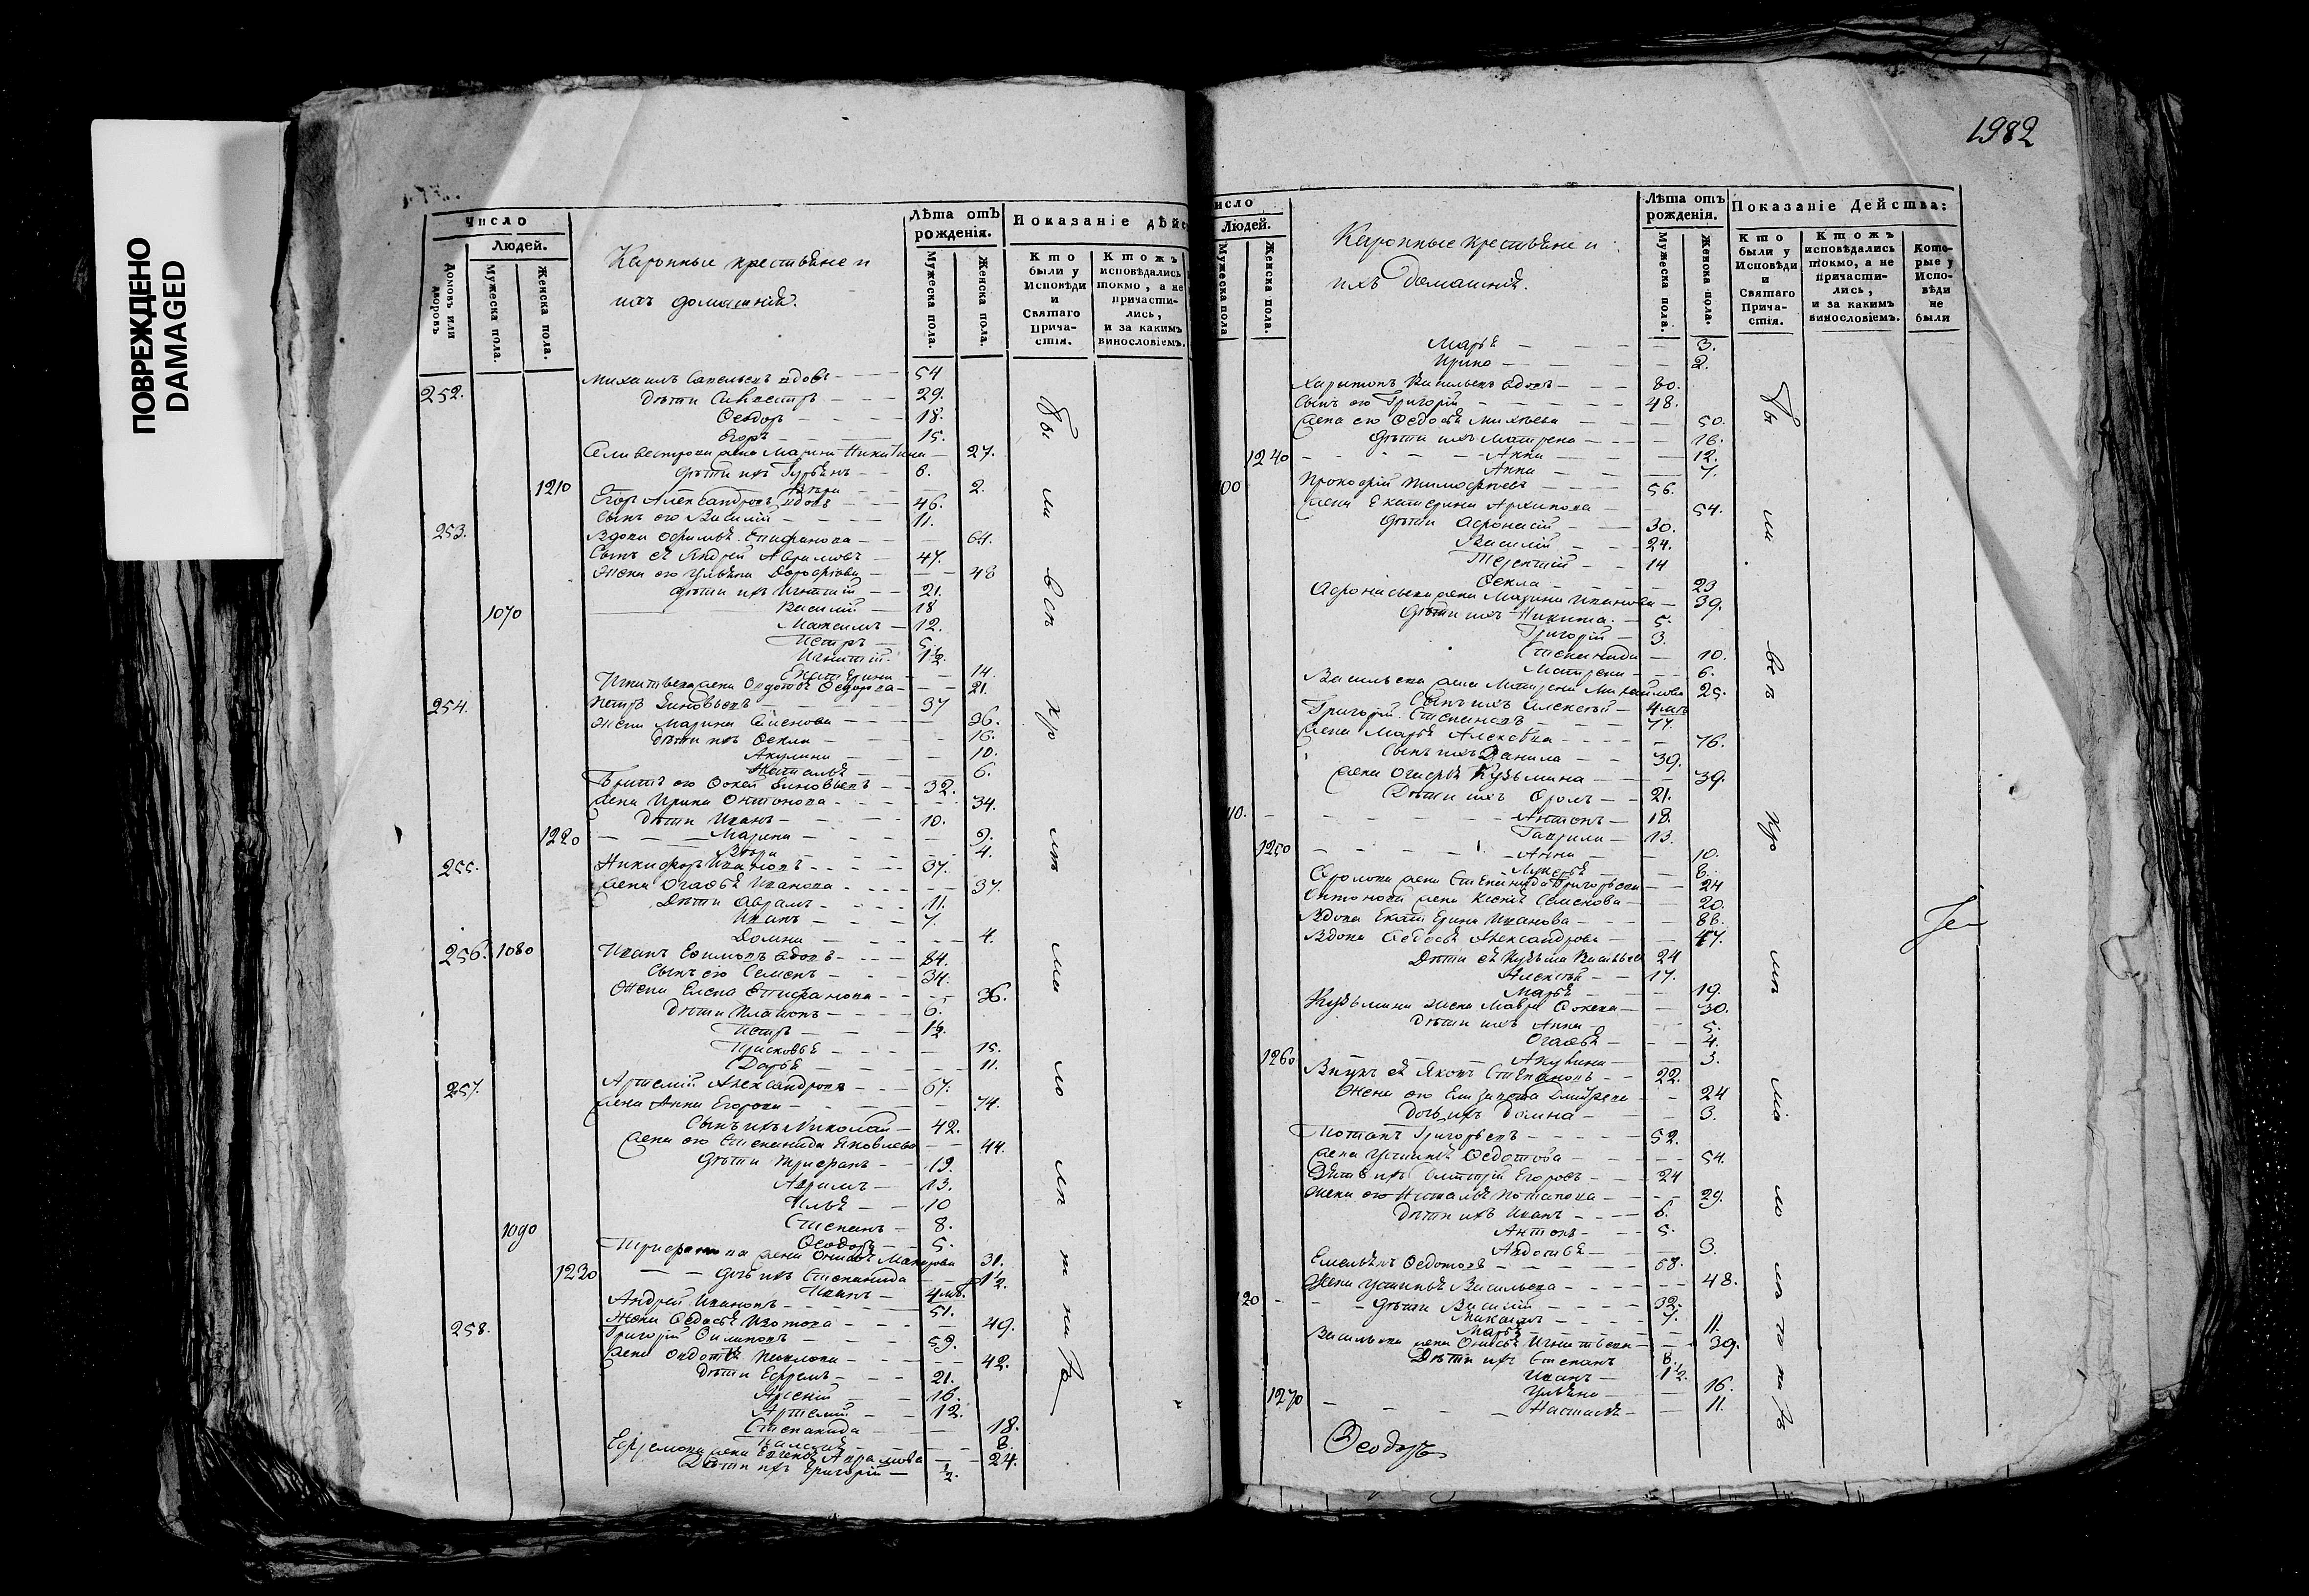 ПОВРЕЖДЕНО
DAMAGED
Число
Людей.
Домовъ или дворовъ
Мужеска пола.
Женска пола.
Каронные крестьяне и
ихъ домашніе.
Лѣта отъ рожденія.
Мужеска пола.
Женска пола.
Показаніе дѣйс
Кто были у Исповѣди и Святаго Прича-стія.
Ктожъ исповѣдались токмо, а не причасти-лись, и за какимъ винословіемъ.
252. Михаилъ Савельевъ вдовъ 54
Дѣти Силвестръ 29.
Ѳеодоръ 18.
Егоръ 15.
Селивестрова жена Марина Никитина 27.
Дѣти ихъ Гурьянъ 6.
1210 2.
Егоръ Александровъ вдовъ 46.
Сынъ его Василій 11.
253. Вдова Епифанова 64.
Сынъ ея Андрей Аврамовъ 47.
Жена его Ульяна Дорофѣева 48
Дѣти ихъ Игнатій 21.
1070 Василій 18
Максимъ 12.
Петръ 5.
Игнатій 1½.
Екатерина 14.
Игнатьева жена Ѳедорова 21.
254. Петръ Зиновьевъ 37
Жена Марина Семенова 36.
Дѣти ихъ Ѳекла 16.
Акулина 10.
Наталья 6.
Братъ его Зиновьевъ 32.
Жена Ирина Антонова 34.
Дѣти Иванъ 10.
1220 Марина 9.
4.
255. Никифоръ Ивановъ 37.
Жена Агафья Иванова 37.
Дѣти Аврамъ 11.
Иванъ 7.
Домна 4.
256. 1080 Иванъ Ефимовъ вдовъ 84.
Сынъ его Семенъ 34.
Жена Елена Епифанова 36.
Дѣти Платонъ 6.
Петръ 1½.
Прасковья 15.
Дарья 11.
257. Артемій Александровъ 67.
Жена Анна Егорова 74.
Сынъ ихъ Николай 42.
Жена его Степанида Яковлева 44.
Дѣти Трифанъ 19.
Аврамъ 13.
Илья 10
Степанъ 8.
1090 Ѳеодоръ 5.
Трифанова жена Макарова 31.
1230 Дочь ихъ Степанида 1½.
Иванъ 4 мѣ.
258. Андрей Ивановъ 51.
Жена Ѳедосья Изотова 49.
Григорій Филиповъ 59.
Жена Авдотья 42.
Дѣти Ефремъ 21.
Арсеній 16.
Артемій 12.
Степанида 18.
8.
Ефремова жена Аврамова 24.
Дѣти ихъ Григорій ½.
бы
ли
всѣ
кро
мѣ
ма
ло
лѣ
т
на го
1982
исло
Людей.
Мужеска пола
Женска пола.
Каронные крестьяне и
ихъ домашніе.
Лѣта отъ рожденія.
Мужеска пола.
Женска пола.
Показаніе Действа:
Кто были у Исповѣди и Святаго Прича-стія.
Ктожъ исповѣдались токмо, а не причасти-лись, и за какимъ винословіемъ.
Кото-рые у Испо-вѣди не были
Марья 3.
Ирина 2.
Харитонъ Васильевъ вдовъ 80.
Сынъ его Григорій 48.
Жена его Ѳедосья Михѣева 50.
Дѣти ихъ Матрена 16.
1240 Анна 12.
Анна 7.
00 Прокофій Тимофѣевъ 56.
Жена Екатерина Архипова 54.
Дѣти Афонасій 30.
Василій 24.
Терентій 14
Ѳекла 23
Афонасьева жена Марина Иванова 39.
Дѣти ихъ Никита 5.
Григорій 3.
Степанида 10.
Матрена 6.
Васильева жена Матрена Михайлова 25.
Сынъ ихъ Алексѣй 4 мѣ
Григорій Степановъ 77.
Жена Марья Алексѣева 76.
Сынъ ихъ Данила 39.
Жена Кузьмина 39.
Дѣти ихъ Фролъ 21.
10. Антонъ 18.
Гаврила 13.
1250 Анна 10.
Лукерья 6.
Фролова жена Степанида Григорьева 24
Антонова жена Семенова 20.
Вдова Екатерина Иванова 86.
Вдова Ѳедосья Александрова 47.
Дѣти ея Кузьма Васильевъ 24
Алексѣй 17.
Марья 19.
Кузьмина жена Мавра Фокеева 30.
Дѣти ихъ Анна 5.
Агафья 4.
1260 Акулина 3.
Внукъ ея Яковъ Степановъ 22.
Жена его Елизавета Дмитрева 24
Дочь ихъ Домна 3.
Потапъ Григорьевъ 52.
Жена Устинья Ѳедотова 54.
Зять ихъ Егоровъ 24
Жена его Наталья Потапова 29.
Дѣти ихъ Иванъ 6.
Антонъ 5.
Авдотья 3.
Емельянъ Ѳедотовъ 58.
Жена Устинья Васильева 48.
20 Дѣти Василій 32.
Михаилъ 7.
Марья 11.
Васильева жена Игнатьева 39.
Дѣти ихъ Степанъ 8.
Иванъ 1½
Ульяна 16.
1270 Настасья 11.
Ѳеодоръ
бы
ли
всѣ
кро
мѣ
ма
ло
лѣ
та
на го